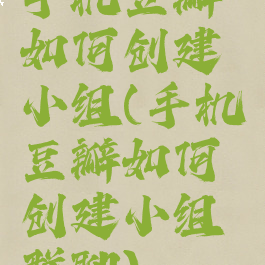 手机豆瓣
如何创建
小组(手机
豆瓣如何
创建小组
群聊)